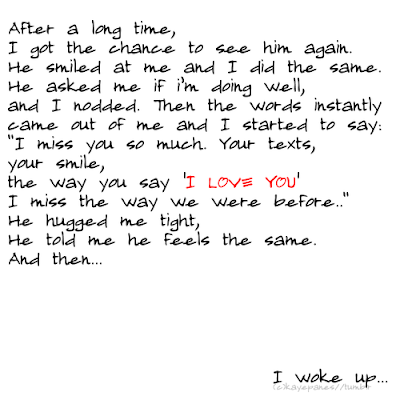 After a long time,
I got the chance to see him again.
He smiled at me and I did the same.
He asked me if i'm doing well,
and I nodded. Then the words instantly
came out of me and I started to say:
"I miss you so much. Your texts,
your smile,
the way you say 'I LOVE YOU'
I miss the way we were before.."
He hugged me tight,
He told me he feels the same.
And then...
I woke up...